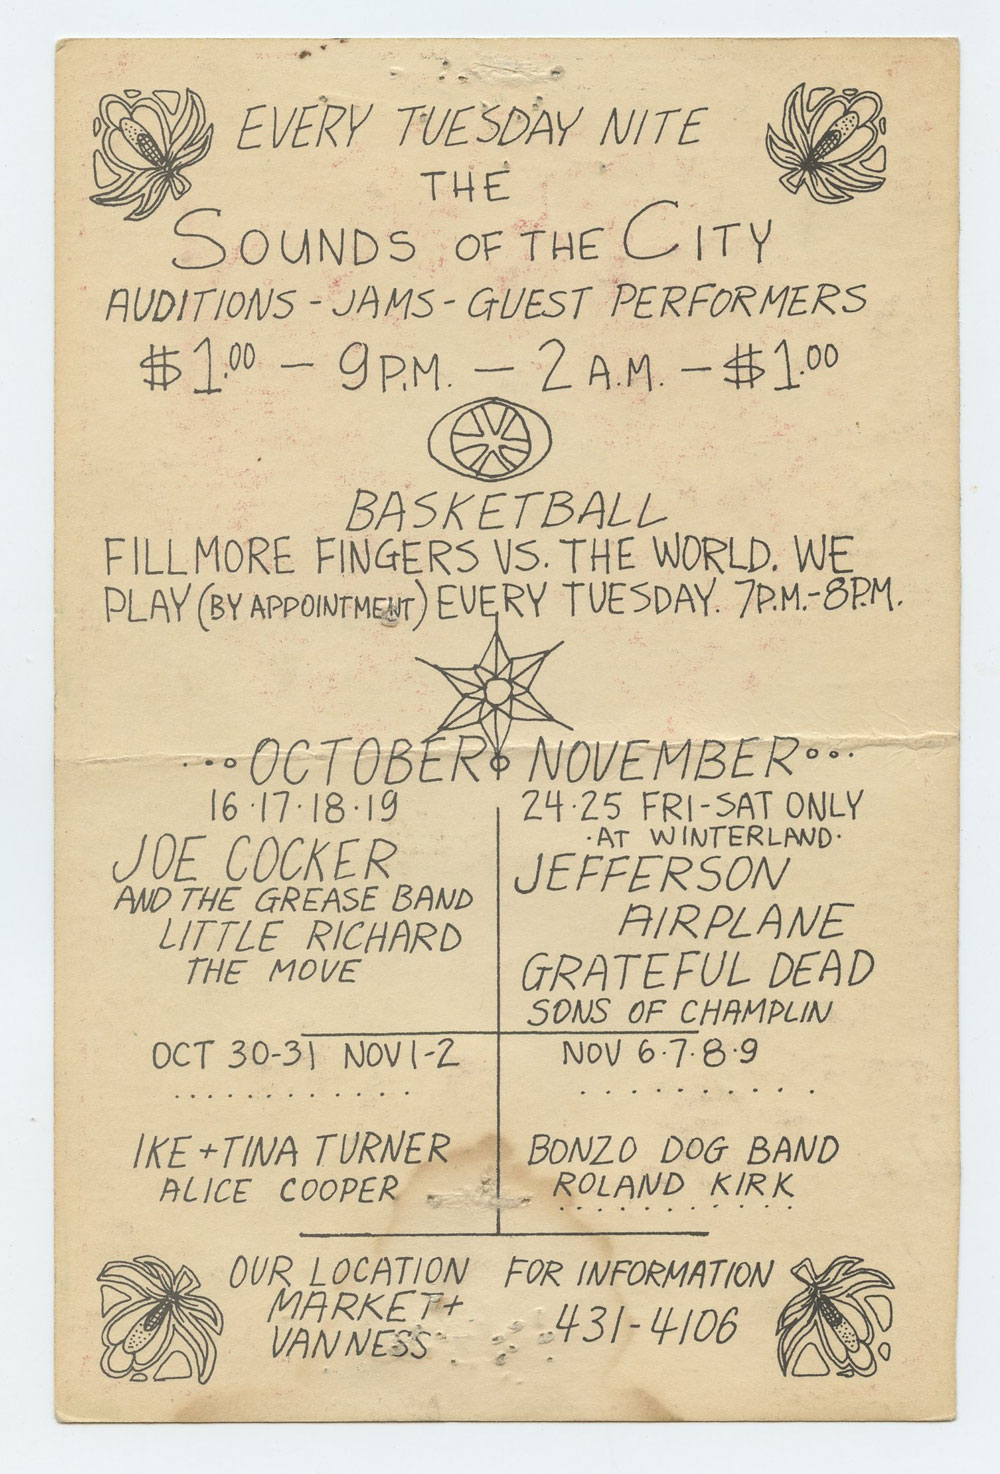 EVERY TUESDAY NITE
THE
SOUNDS OF THE CITY
AUDITIONS - JAMS - GUEST PERFORMERS
$1.00 — 9 P.M. — 2 A.M. — $1.00
BASKETBALL
FILLMORE FINGERS VS. THE WORLD. WE
PLAY (BY APPOINTMENT) EVERY TUESDAY. 7P.M.-8P.M.
...OCTOBER NOVEMBER...
16·17·18·19
JOE COCKER
AND THE GREASE BAND
LITTLE RICHARD
THE MOVE
24·25 FRI-SAT ONLY
·AT WINTERLAND·
JEFFERSON
AIRPLANE
GRATEFUL DEAD
SONS OF CHAMPLIN
OCT 30-31 NOV 1-2
IKE + TINA TURNER
ALICE COOPER
NOV 6·7·8·9
BONZO DOG BAND
ROLAND KIRK
OUR LOCATION
MARKET +
VAN NESS
FOR INFORMATION
431-4106